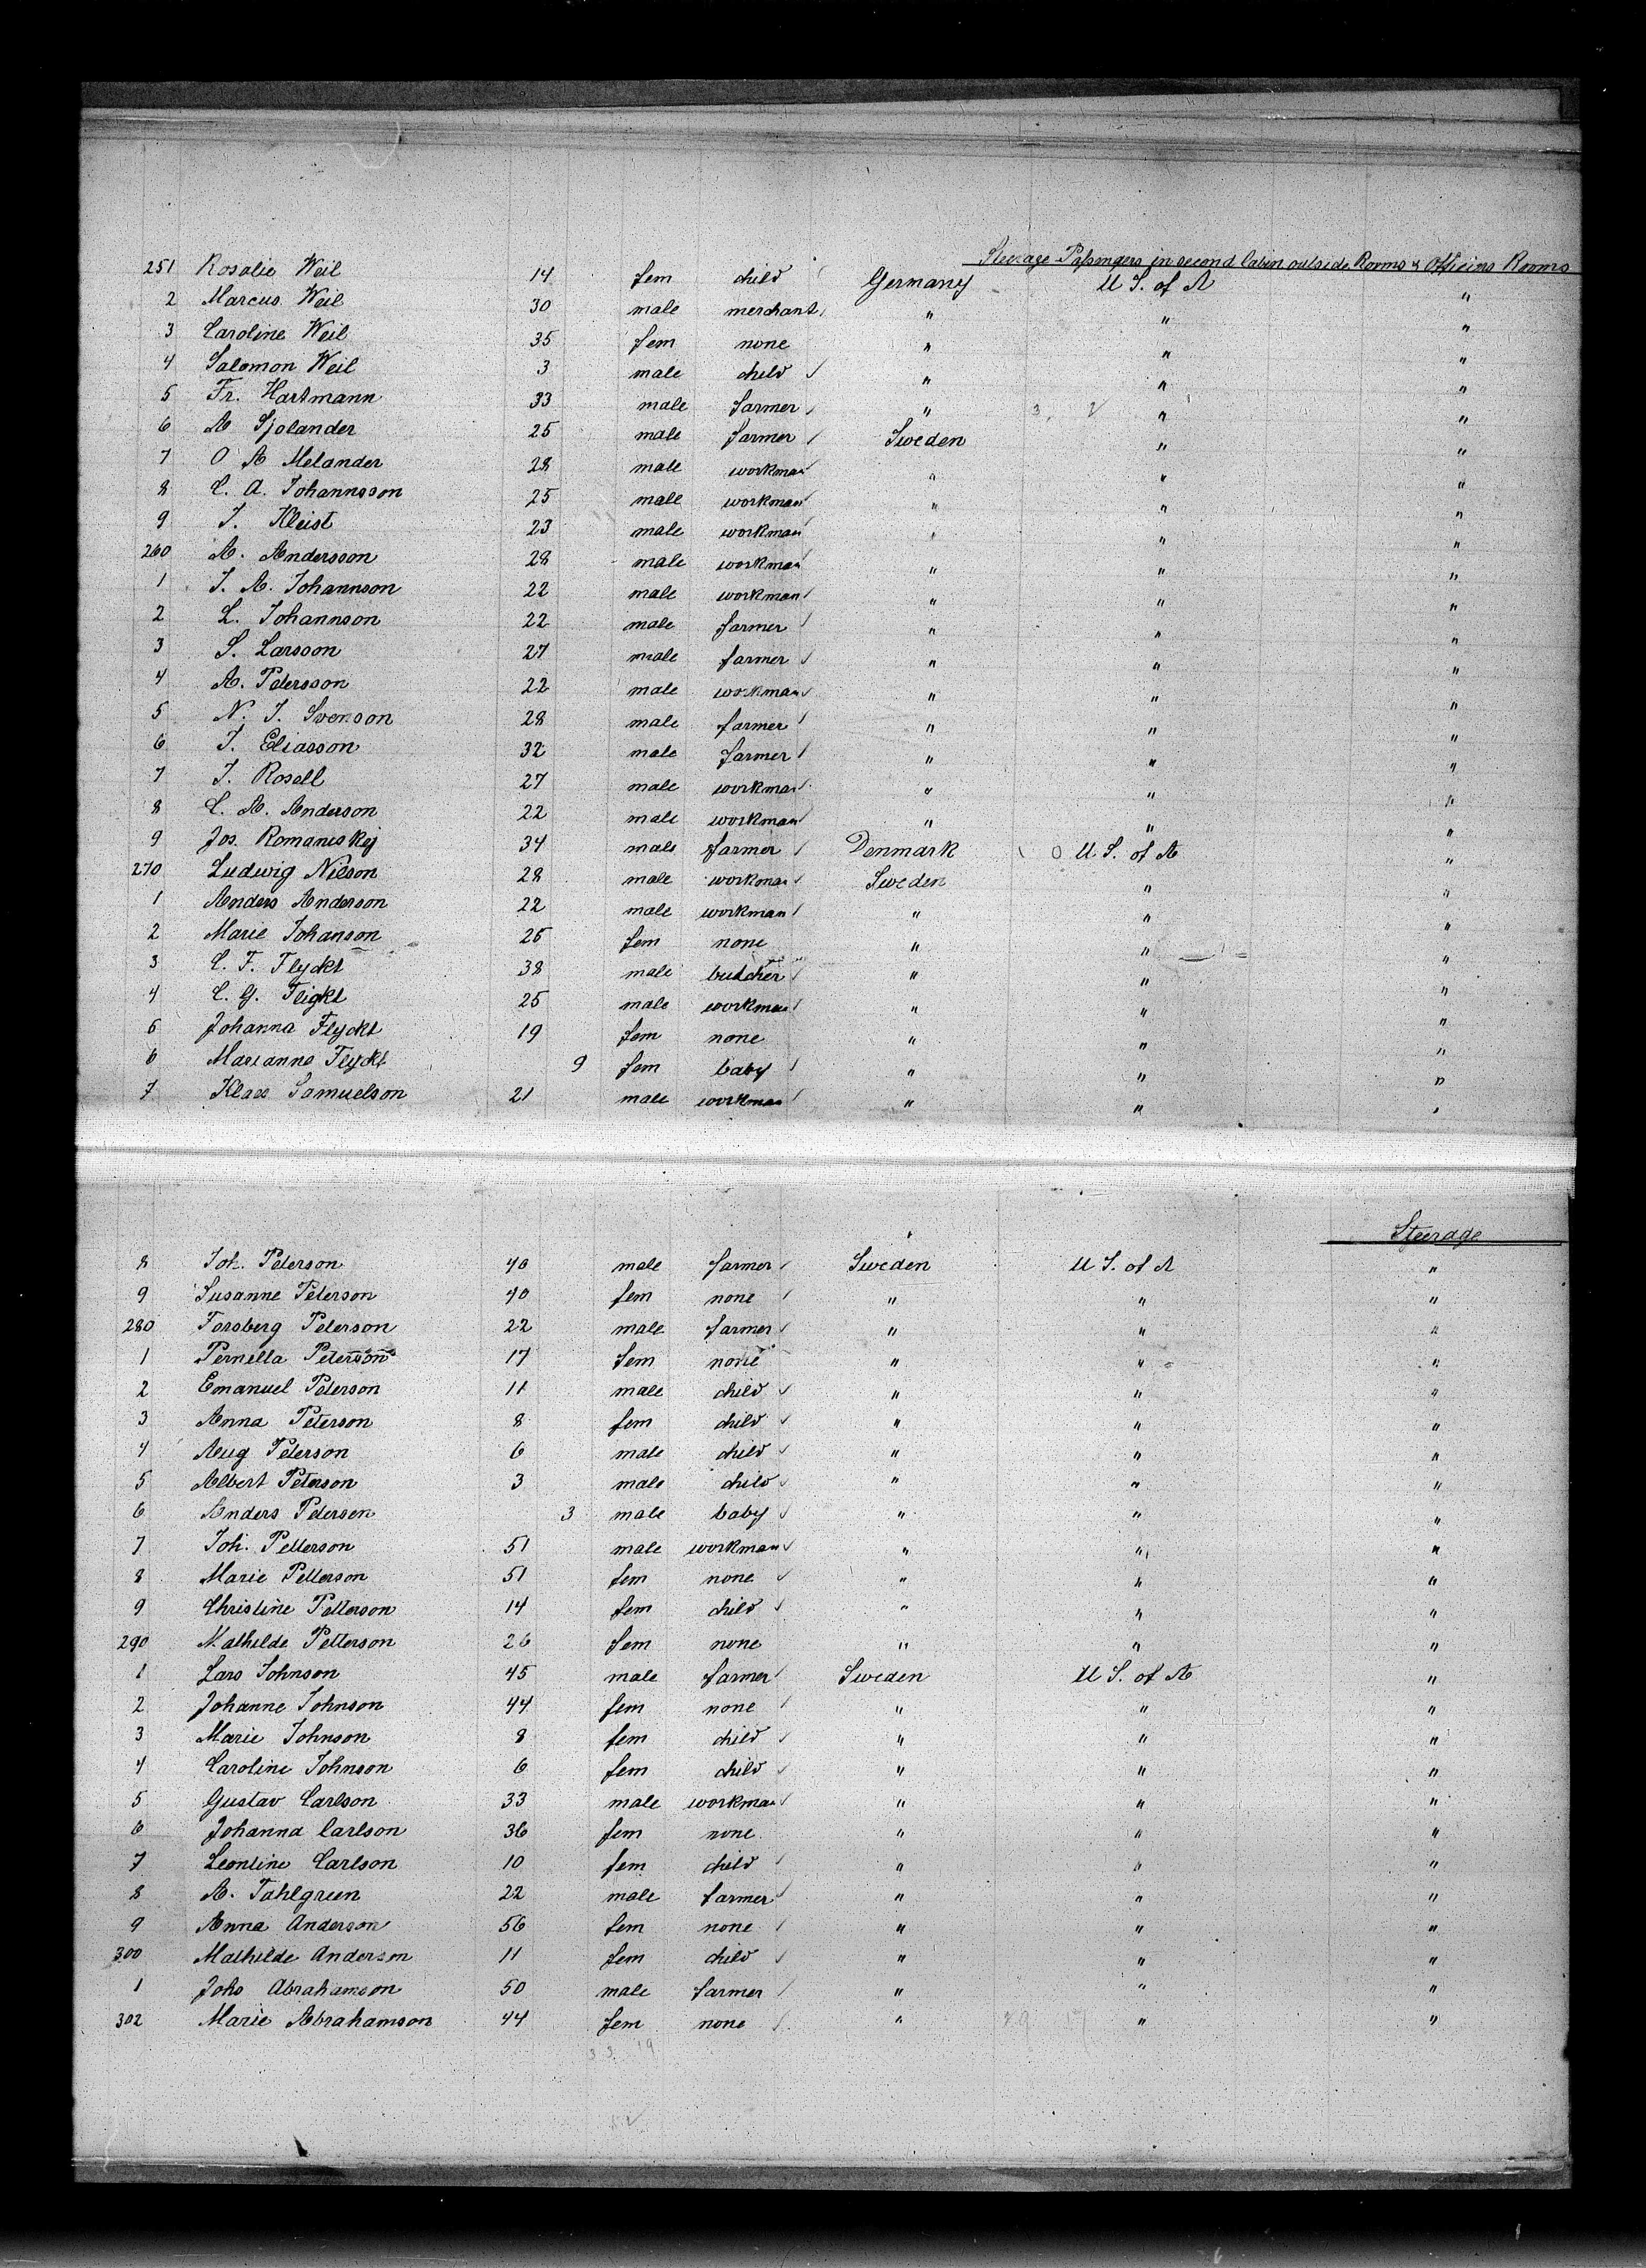 Steerage Passengers in second Cabin outside Rooms & Officiers Rooms
251 Rosalie Weil 14 fem child Germany U S. of A "
2 Marcus Weil 30 male merchant " " "
3 Caroline Weil 35 fem none " " "
4 Salomon Weil 3 male child " " "
5 Fr. Hartmann 33 male farmer " " "
6 A Sjolander 25 male farmer Sweden " "
7 O A Melander 28 male workman " " "
8 C. A. Johannsson 25 male workman " " "
9 J. Kleist 23 male workman " " "
260 A. Andersson 28 male workman " " "
1 J. A. Johannson 22 male workman " " "
2 L. Johannson 22 male farmer " " "
3 S. Larsson 27 male farmer " " "
4 A. Petersson 22 male workman " " "
5 N. J. Svenson 28 male farmer " " "
6 J. Eliasson 32 male farmer " " "
7 J. Rosell 27 male workman " " "
8 C. A. Anderson 22 male workman " " "
9 Jos. Romaneskij 34 male farmer Denmark U S. of A "
270 Ludwig Nilson 28 male workman Sweden " "
1 Anders Anderson 22 male workman " " "
2 Marie Johanson 25 fem none " " "
3 C. F. Flyckt 38 male butcher " " "
4 C. G. Fligkt 25 male workman " " "
5 Johanna Flyckt 19 fem none " " "
6 Marianne Flyckt 9 fem baby " " "
7 Klaes Samuelson 21 male workman " " "
Steerage
8 Joh. Peterson 40 male farmer Sweden U S. of A "
9 Susanne Peterson 40 fem none " " "
280 Forsberg Peterson 22 male farmer " " "
1 Pernella Peterson 17 fem none " " "
2 Emanuel Peterson 11 male child " " "
3 Anna Peterson 8 fem child " " "
4 Aug Peterson 6 male child " " "
5 Albert Peterson 3 male child " " "
6 Anders Petersen 3 male baby " " "
7 Joh. Petterson 51 male workman " " "
8 Marie Petterson 51 fem none " " "
9 Christine Petterson 14 fem child " " "
290 Mathilde Petterson 26 fem none " " "
1 Lars Johnson 45 male farmer Sweden U S. of A "
2 Johanne Johnson 44 fem none " " "
3 Marie Johnson 8 fem child " " "
4 Caroline Johnson 6 fem child " " "
5 Gustav Carlson 33 male workman " " "
6 Johanna Carlson 36 fem none " " "
7 Leontine Carlson 10 fem child " " "
8 A. Tahlgreen 22 male farmer " " "
9 Anna Anderson 56 fem none " " "
300 Mathilde Anderson 11 fem child " " "
1 Johs Abrahamson 50 male farmer " " "
302 Marie Abrahamson 44 fem none " " "